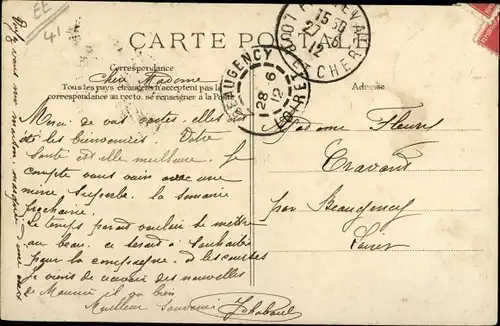 EE
41
CARTE POSTALE
Correspondance
Tous les pays étrangers n'acceptent pas la
correspondance au recto, se renseigner à la Poste
Adresse
LOIR-&-CHER
15 30
27-6
12
BEAUGENCY
28 6
12
LOIRET
Chère Madame
Merci de vos cartes elles
ont été les bienvenues. Votre
santé est elle meilleure. Je
compte vous voir avec une
mine superbe la semaine
prochaine
Le temps parait vouloir se mettre
au beau ce serait à souhaiter
pour la campagne et les
Je viens de recevoir des nouvelles
de Maurice il va bien
Meilleur souvenir
Madame Fleury
Cravant
par Beaugency
Loiret